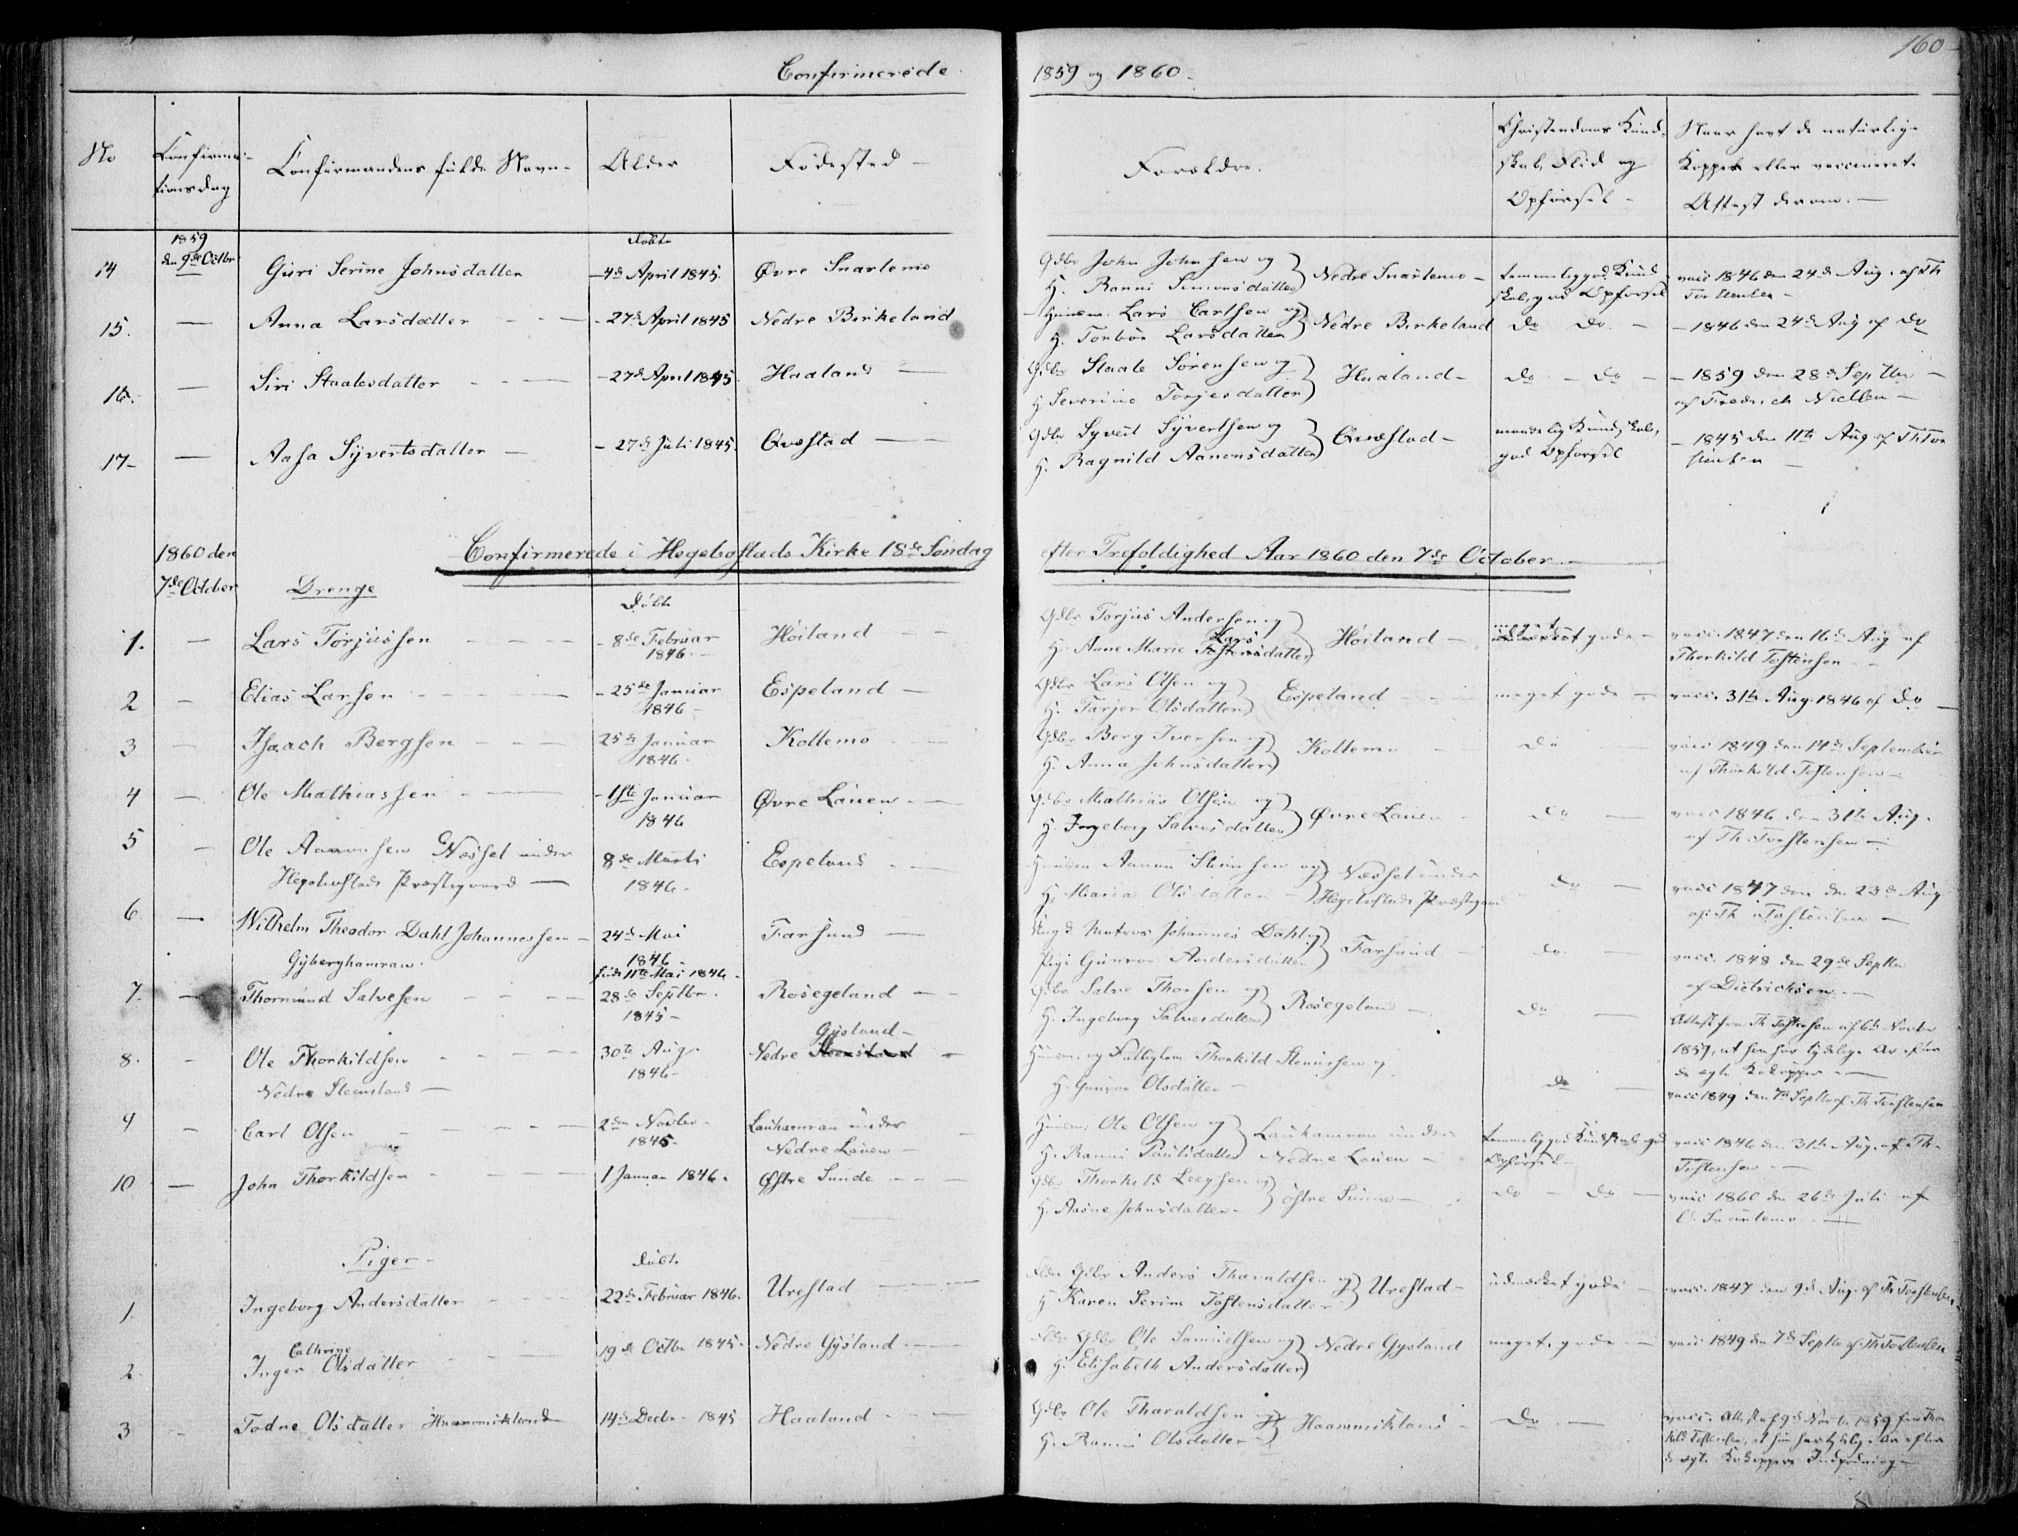 Confirmerede
1859 og 1860.
160
No
Confirma-
tionsdag
Confirmandens fulde Navn
Alder
Fødested
Forældre.
Christendoms Kund-
skab, Flid og
Opførsel
Naar havt de naturlige
Kopper eller vaccineret.
Attest derom.
1859
den 9de Octbr
Døbt
14 Guri Serine Johnsdatter 4de April 1845. Øvre Snartemo Gdbr John Johnsen og Nedre Snartemo temmelig god Kund- vacc 1846 den 24de Aug. af Th
H. Ranni Simonsdatter skab, god Opførsel Torstensen
15. Anna Larsdatter 27de April 1845 Nedre Birkeland Huusm. Lars Carlsen og Nedre Birkeland do do 1846 den 24de Aug af do
H. Torbør Larsdatter
16. Siri Staalesdatter 27de April 1845. Haaland Gdbr Staale Sørensen og Haaland do do 1859 den 28de Septbr
H. Severine Torjesdatter af Fredrich Nielsen
17 Aasa Syvertsdatter 27de Juli 1845. Qvæstad Gdbr Syvert Syvertsen og Qvæstad maadelig Kundskab, 1845 den 11te Aug af Th Tor
H. Ragnild Aanensdatter god Opførsel stensen
1860 den
7de October
Confirmerede i Hegebostads Kirke 18de Søndag efter Trefoldighed Aar 1860 den 7de October.
Drenge
Døbt
1. Lars Torjussen 8de Februar 1846. Høiland Gdbr Torjus Andersen og Høiland meget gode vacc. 1847 den 16de Aug af
H. Anne Marie Larsdatter Thorkild Tostensen
2 Elias Larsen 25de Januar 1846 Espeland Gdbr Lars Olsen og Espeland meget gode vacc. 31te Aug. 1846 af do
H. Tarjer Olsdatter
3 Isaach Bergsen 25de Januar 1846. Kollemo Gdbr Berg Iversen og Kollemo do vacc 1849 den 14de September
H. Anna Johnsdatter af Thorkild Tostensen
4 Ole Mathiassen 1ste Januar 1846 Øvre Lauen Gdbr Mathias Olsen og Øvre Lauen do vacc 1846 den 31te Aug.
H. Ingeborg Salvesdatter af Th. Torstensen
5 Ole Aanonsen Næsset under 8de Marts 1846. Espeland Huusm Aanon Steensen og Næsset under do vacc 1847 den 23de Aug
Hegebostads Præstegaard H. Maria Olsdatter Hegebostads Præstegaard af Th Tostensen
6. Wilhelm Theodor Dahl Johannessen 24de Mai 1846 Farsund Ungk. Matros Johannes Dahl og Farsund do vacc. 1848 den 29de Septbr
Gyberghamran. født 11te Mai 1846. Pige Gunvor Andersdatter af Dietrichsen
7. Thormund Salvesen 28de Septbr. 1845 Røsegeland Gdbr Salve Thorsen og Røsegeland do Attest fra Th Tostensen af 6te Novbr
H. Ingeborg Salvesdatter 1859, at han har tydelige Ar efter
de ægte Kokopper
8. Ole Thorkildsen 30te Aug. 1846 Nedre Gysland Huusm. og Fattiglem Thorkild Steensen og do vacc 1849 den 7de Septbr af Th Torstensen
Nedre Steensland H. Gunvor Olsdatter
9 Carl Olsen 2den Novbr. 1845. Lauhamran under Huusm. Ole Olsen og Lauhamran under temmelig god Kundskab god vacc 1846 den 31te Aug. af Th
Nedre Lauen H. Ranni Paulsdatter Nedre Lauen Opførsel Tostensen
10 John Thorkildsen 1 Januar 1846. Østre Sunde Gdbr Thorkild Leegsen og Østre Sunde do do vacc 1860 den 26de Juli af
H. Aasne Johnsdatter O. Snartemo
Piger
Døbt
1. Ingeborg Andersdatter 22de Februar 1846. Urestad Gdbr Anders Tharaldsen og Urestad udmærket gode vacc. 1847 den 9de Aug. af Th Torstensen
H Karen Serine Tostensdatter
Cathrine
2. Inger Olsdatter 19de Octbr 1845. Nedre Gysland Gdbr Ole Samuelsen og Nedre Gysland meget gode vacc 1849 den 7de Septbr af Th Torstensen
H. Elisabeth Andersdatter
3 Todne Olsdatter Haammikland 14de Decbr 1845 Haaland Gdbr Ole Tharaldsen og Haammikland do vacc. Attest af 9de Novbr 1859 fra Thor
H. Ranni Olsdatter kild Tostensen, at hun har tydelige Ar efter
de ægte Kokoppers Indpodning